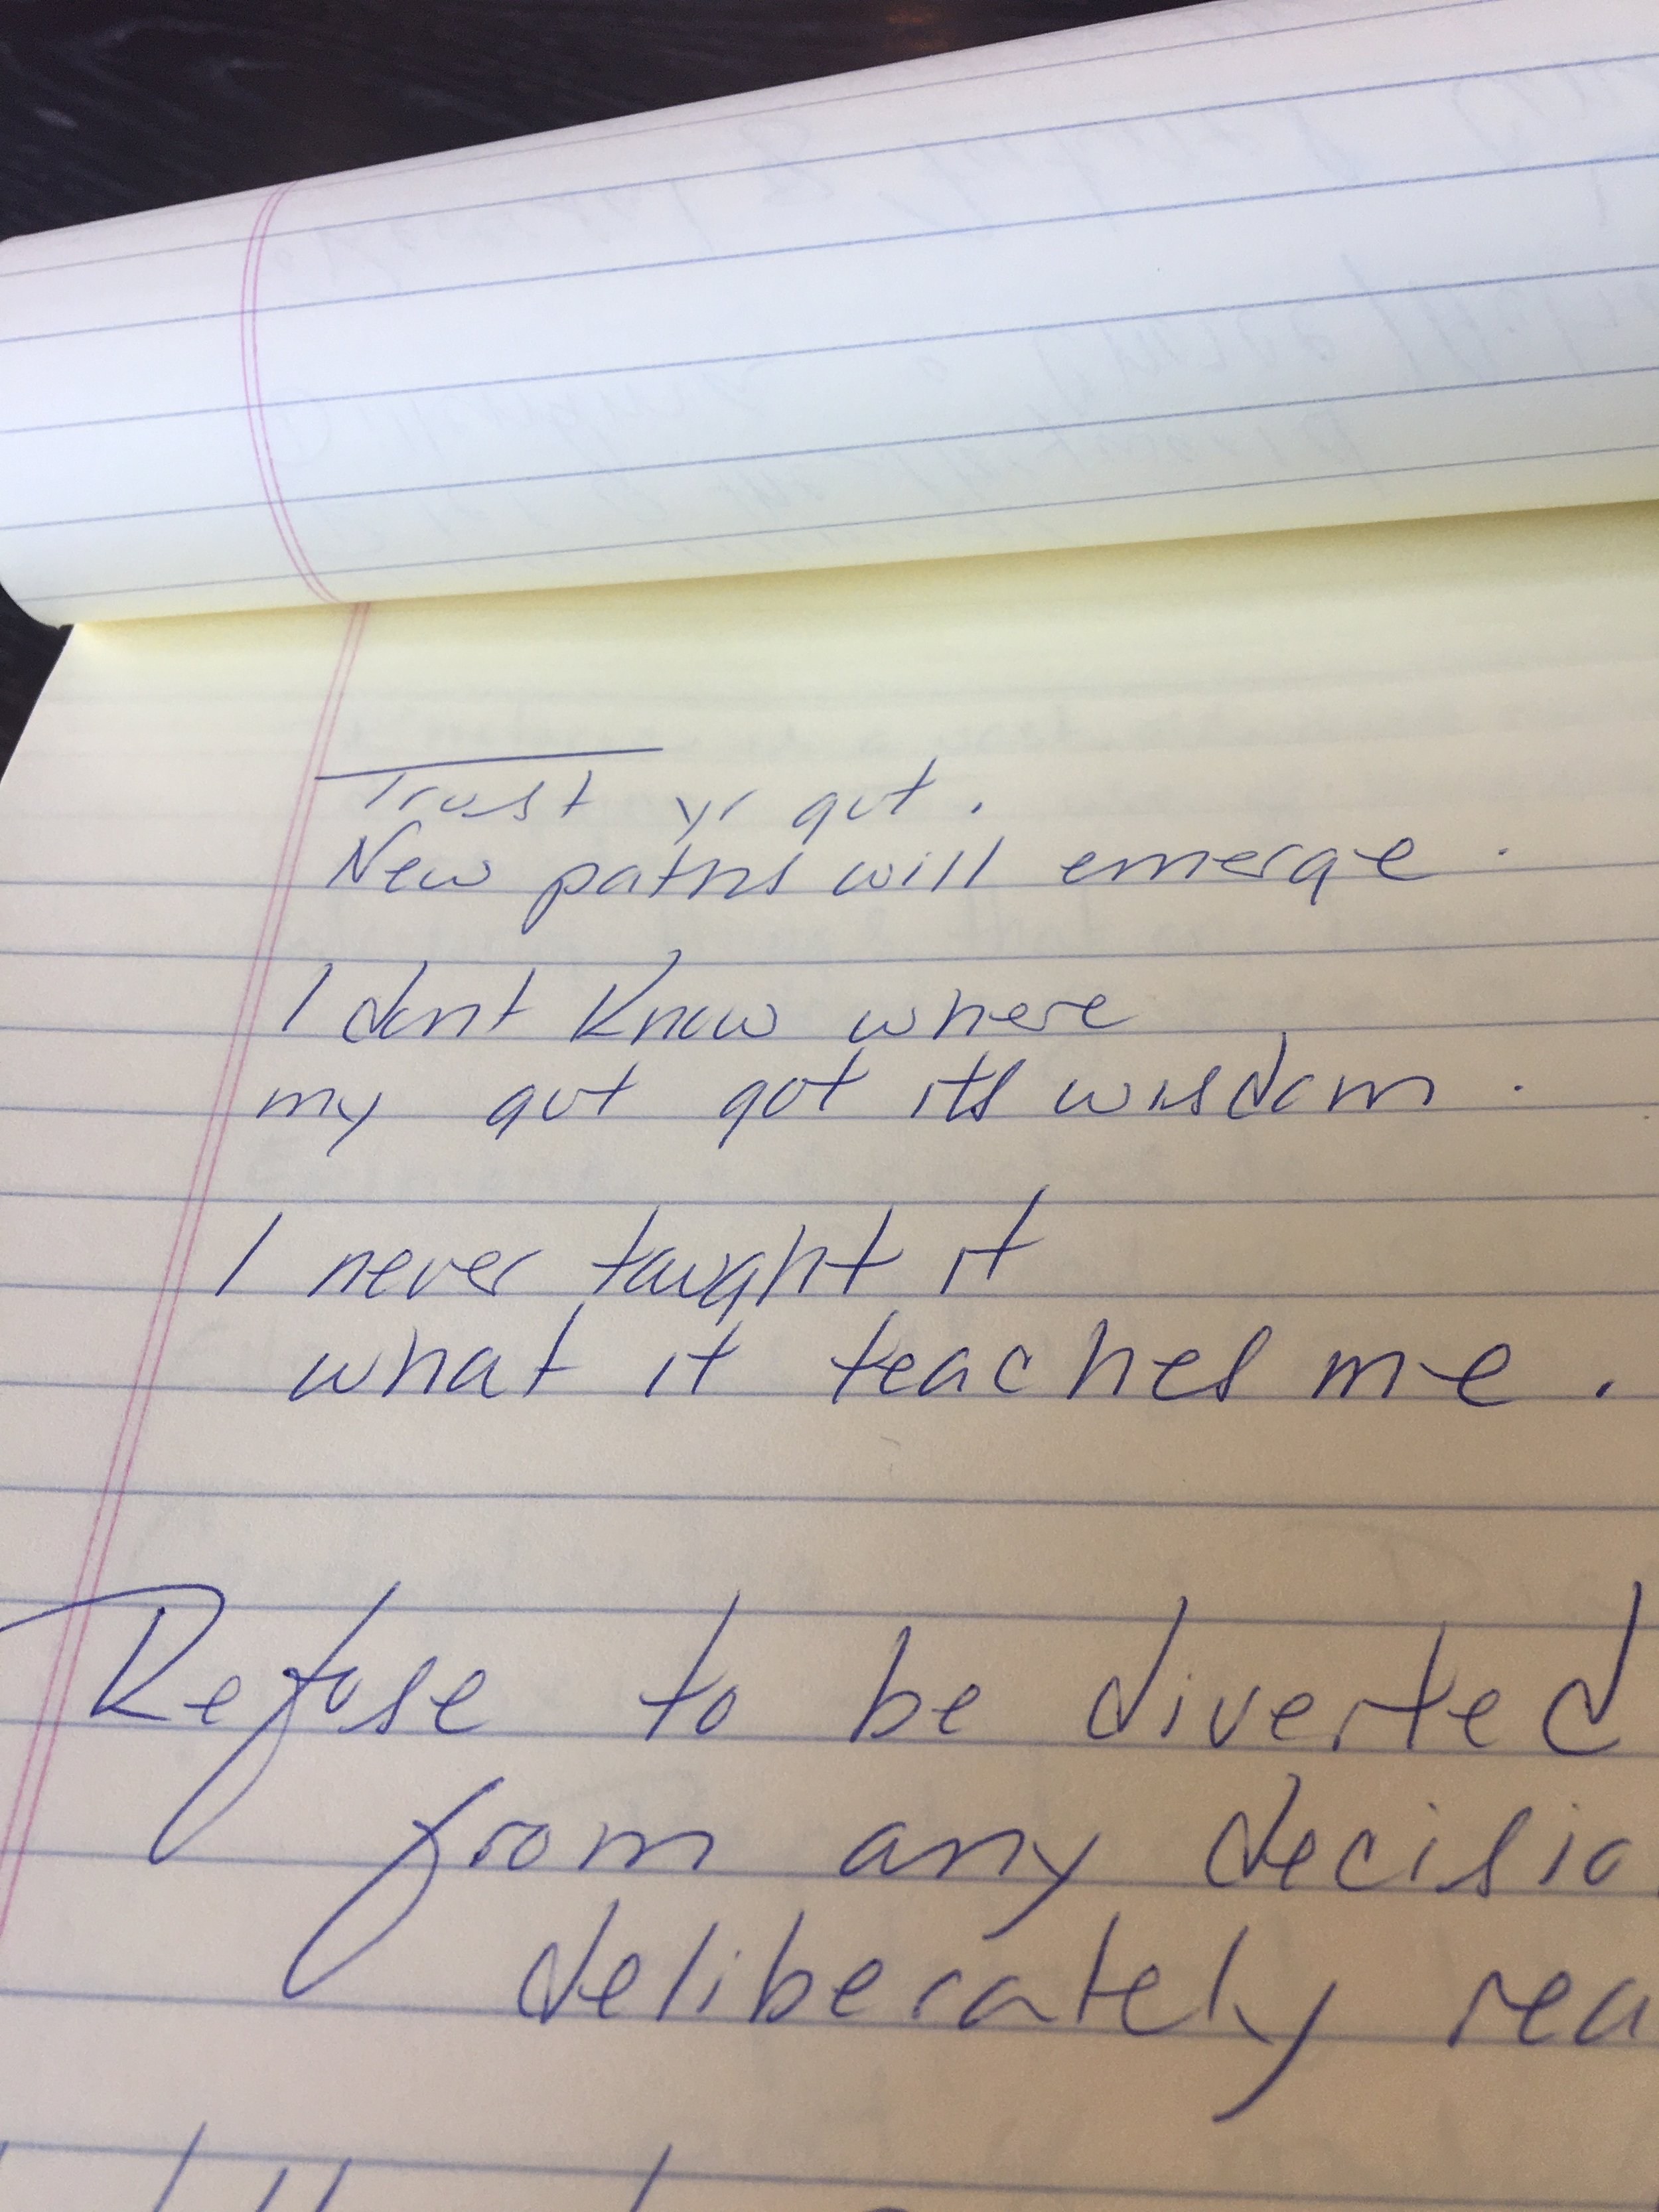 Trust yr gut.
New paths will emerge.
I dont know where
my gut got its wisdom.
I never taught it
what it teaches me.
Refuse to be diverted
from any decisio
deliberately rea